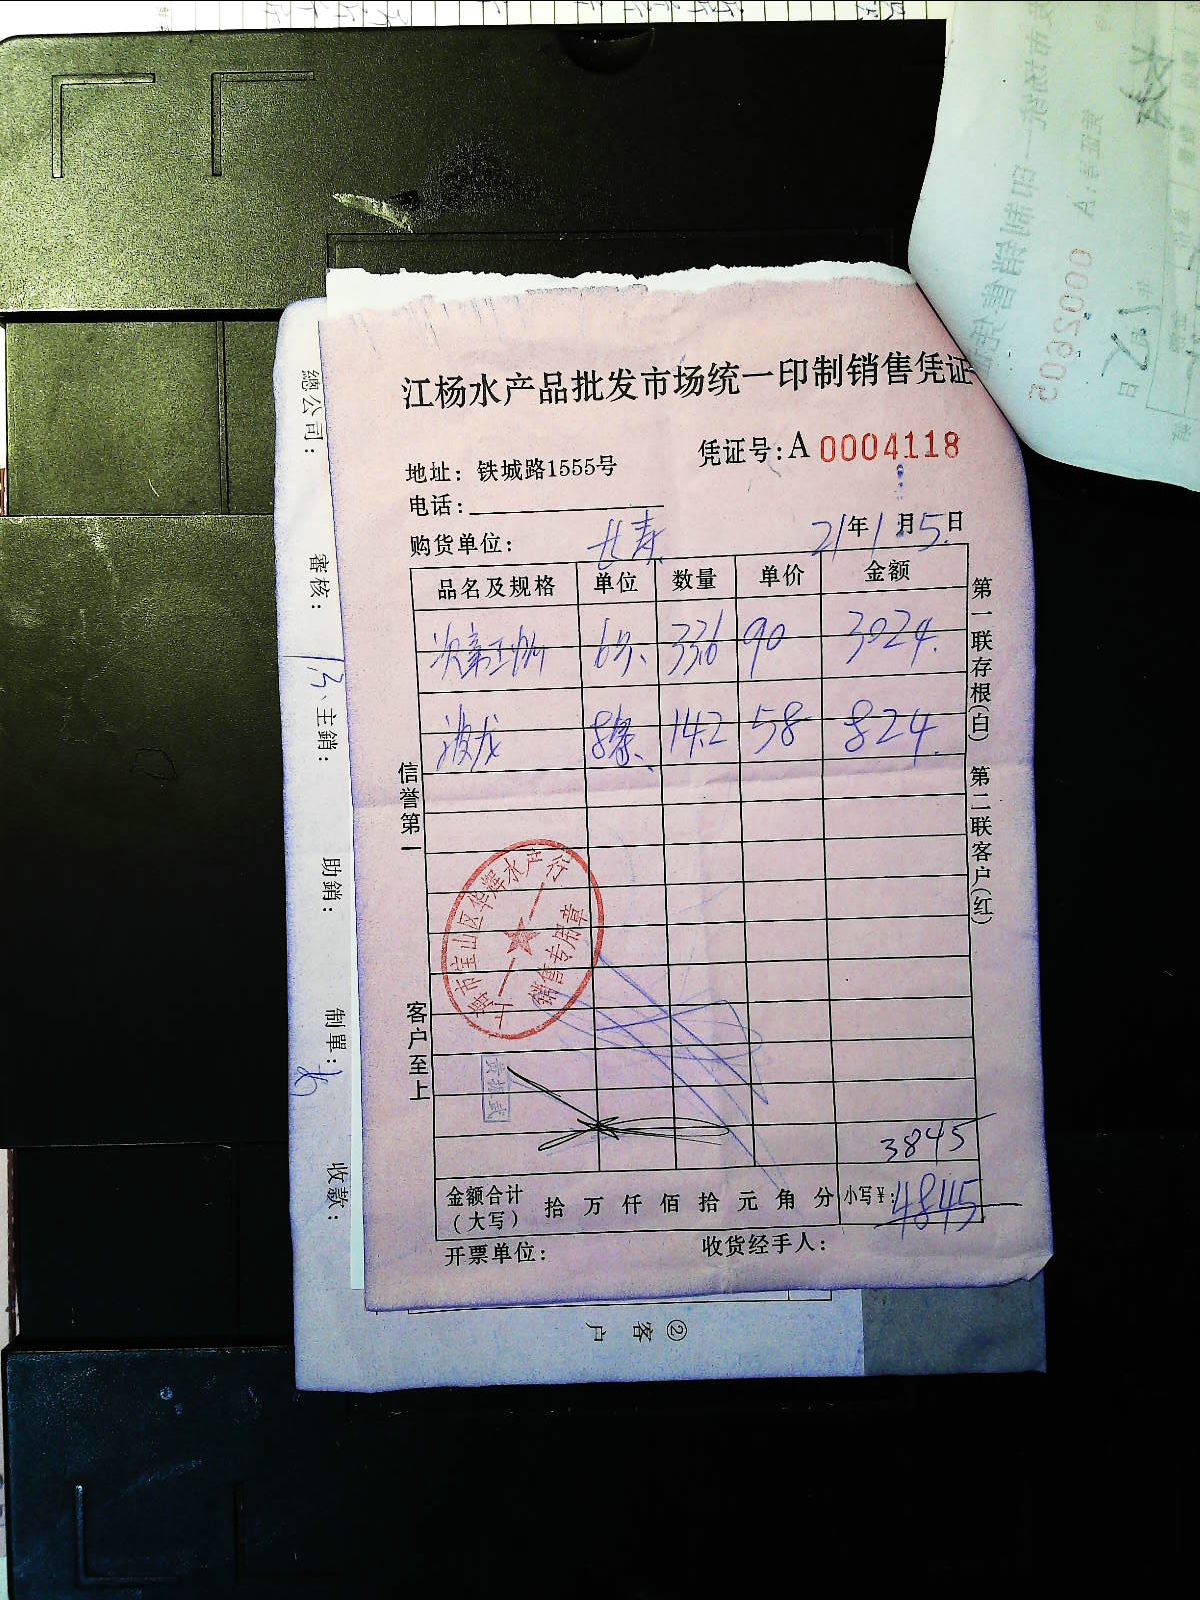 江杨水产品批发市场统一印制销售凭证
凭证号:A 0004118
地址: 铁城路1555号
电话:
购货单位:
21年1月5日
品名及规格 单位 数量 单价 金额
33.6 90 3024.
波龙 14.2 58 824.
3845
金额合计(大写) 拾 万 仟 佰 拾 元 角 分 小写¥: 4845
开票单位: 收货经手人:
信誉第一
客户至上
第一联存根(白) 第二联客户(红)
上海市宝山区华辉水产行
销售专用章
總公司:
審核:
主銷:
助銷:
制單:
收款:
②客户
0002605